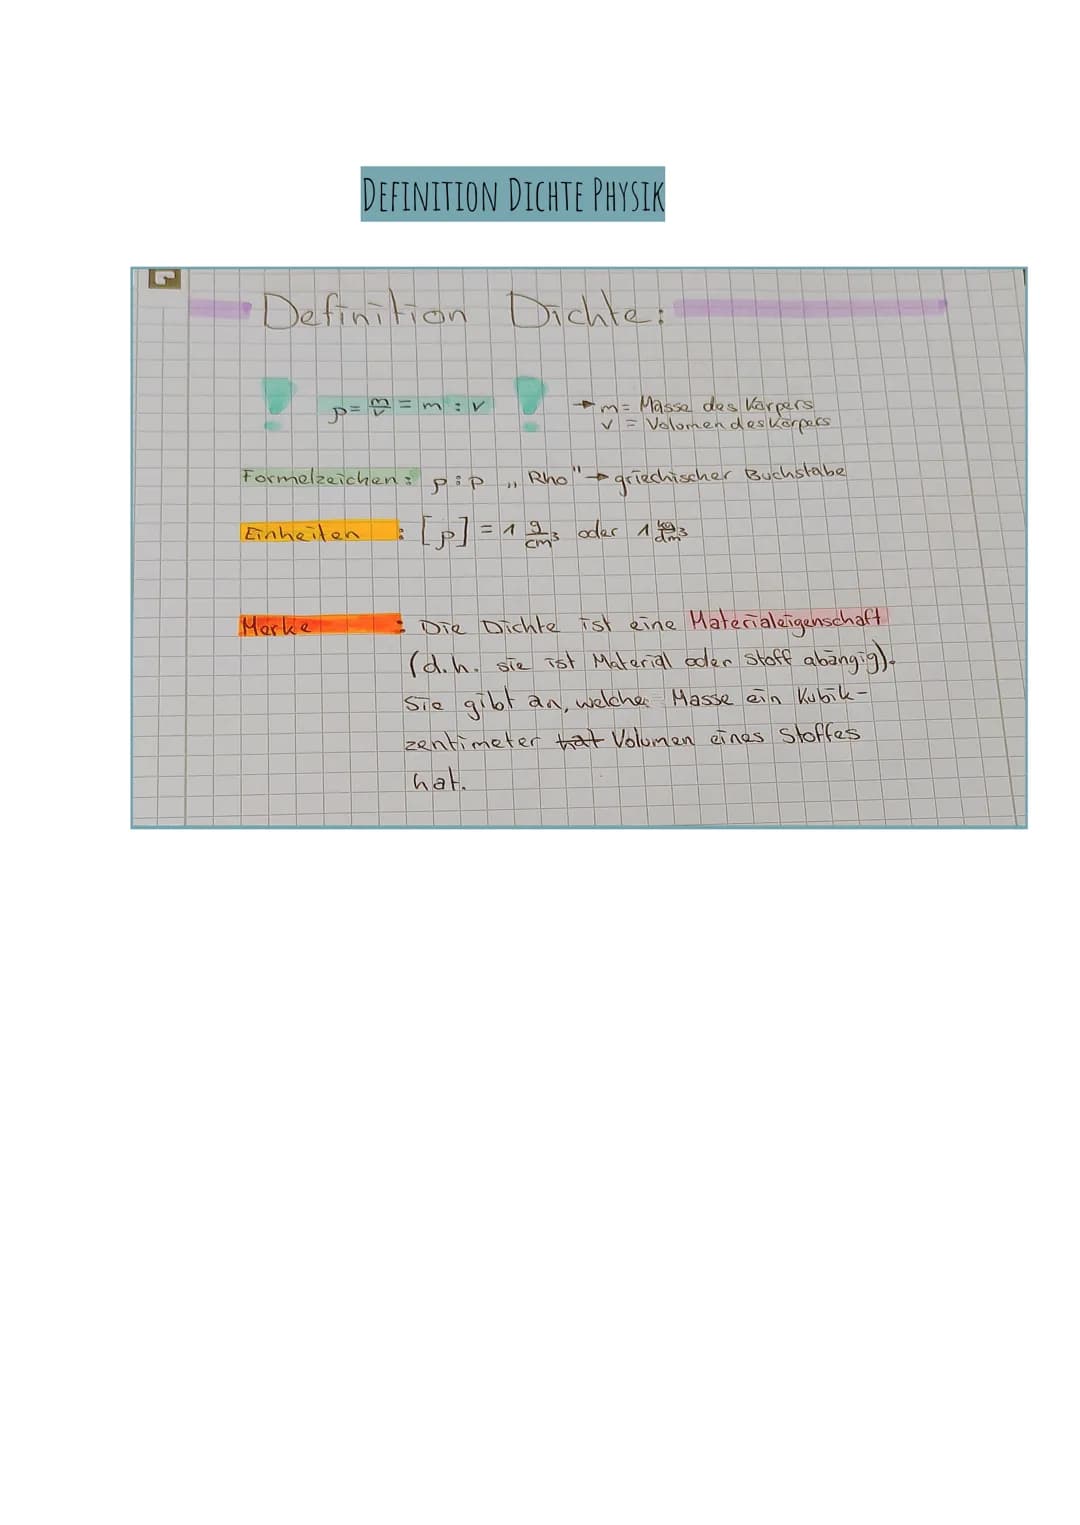 DEFINITION DICHTE PHYSIK
Definition Dichte:
! ρ = m/v = m : v ! → m = Masse des Körpers
v = Volumen des Körpers
Formelzeichen: ρ : p „Rho" → griechischer Buchstabe
Einheiten : [ρ] = 1 g/cm³ oder 1 kg/dm³
Merke : Die Dichte ist eine Materialeigenschaft
(d.h. sie ist Material oder stoff abängig).
Sie gibt an, welche Masse ein Kubik-
zentimeter hat Volumen eines Stoffes
hat.